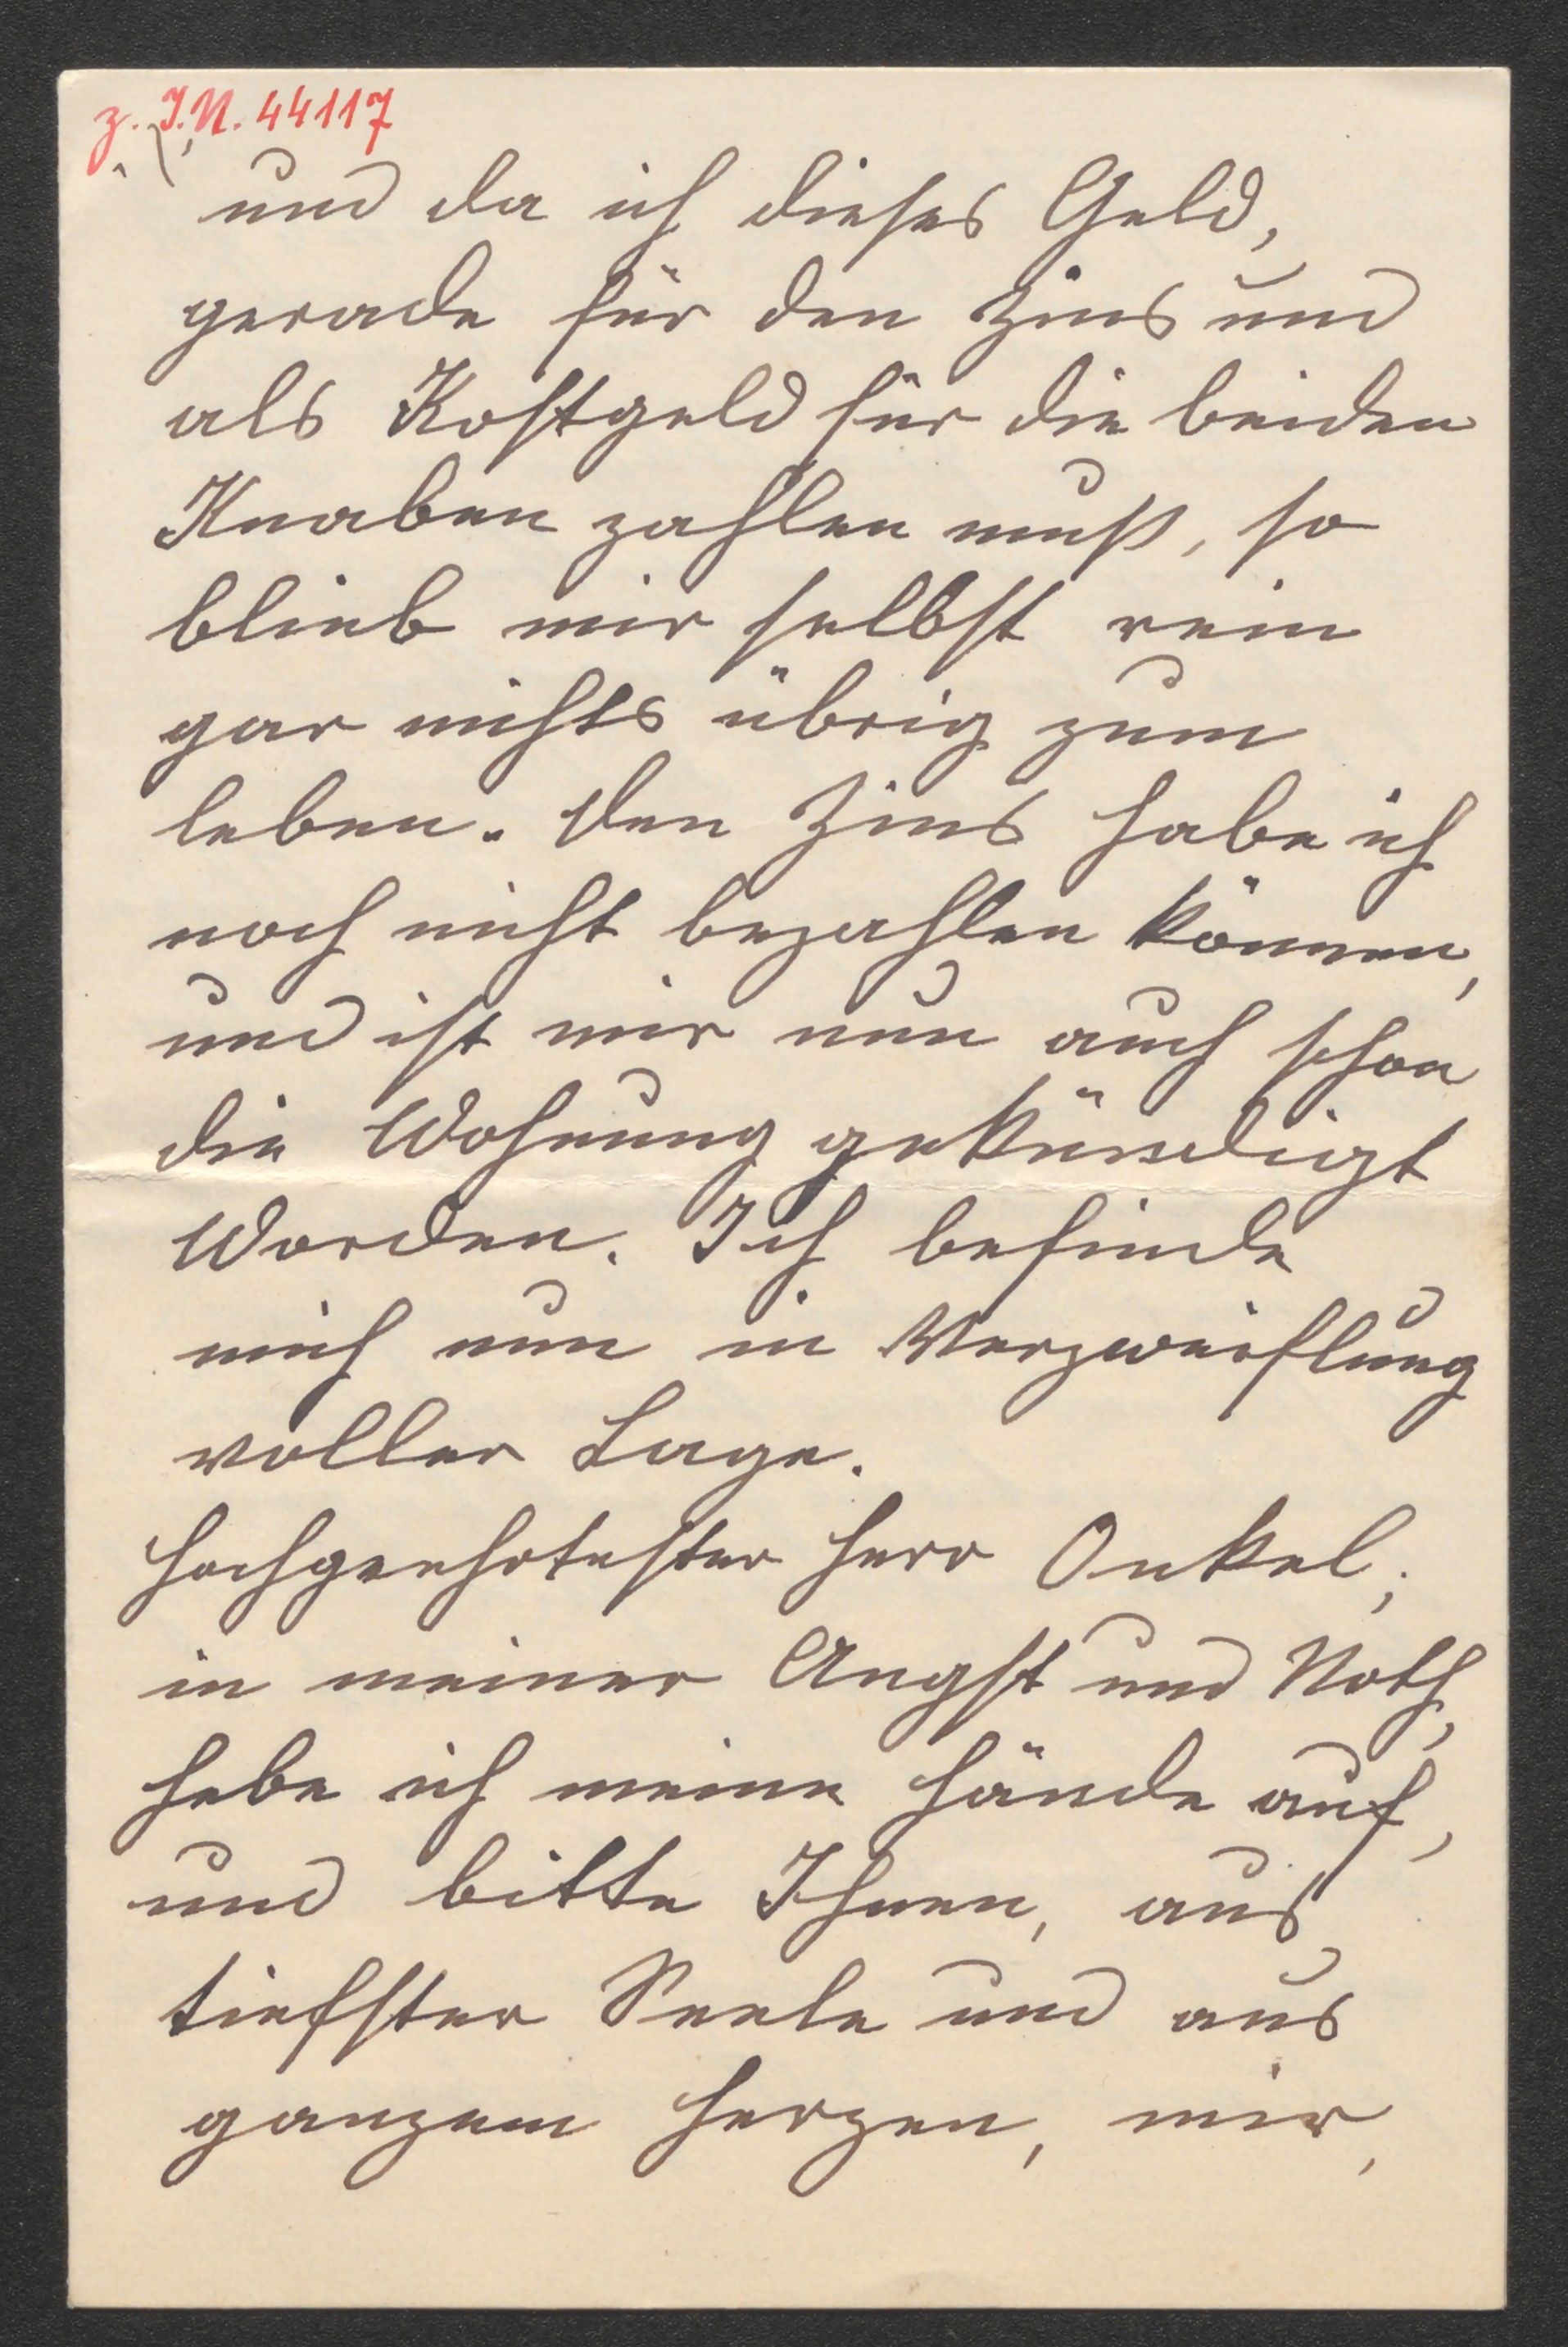 z. I.N. 44117
und da ich dieses Geld,
gerade für den Zins und
als Kostgeld für die beiden
Knaben zahlen muß, so
blieb mir selbst rein
gar nichts übrig zum
leben. Den Zins habe ich
noch nicht bezahlen können,
und ist mir nun auch schon
die Wohnung gekündigt
Worden. Ich befinde
mich nun in Verzweiflung
voller Lage.
Hochgeehrtester Herr Onkel;
in meiner Angst und Noth,
hebe ich meine Hände auf,
und bitte Ihnen, aus
tiefster Seele und aus
ganzem Herzen, mir,